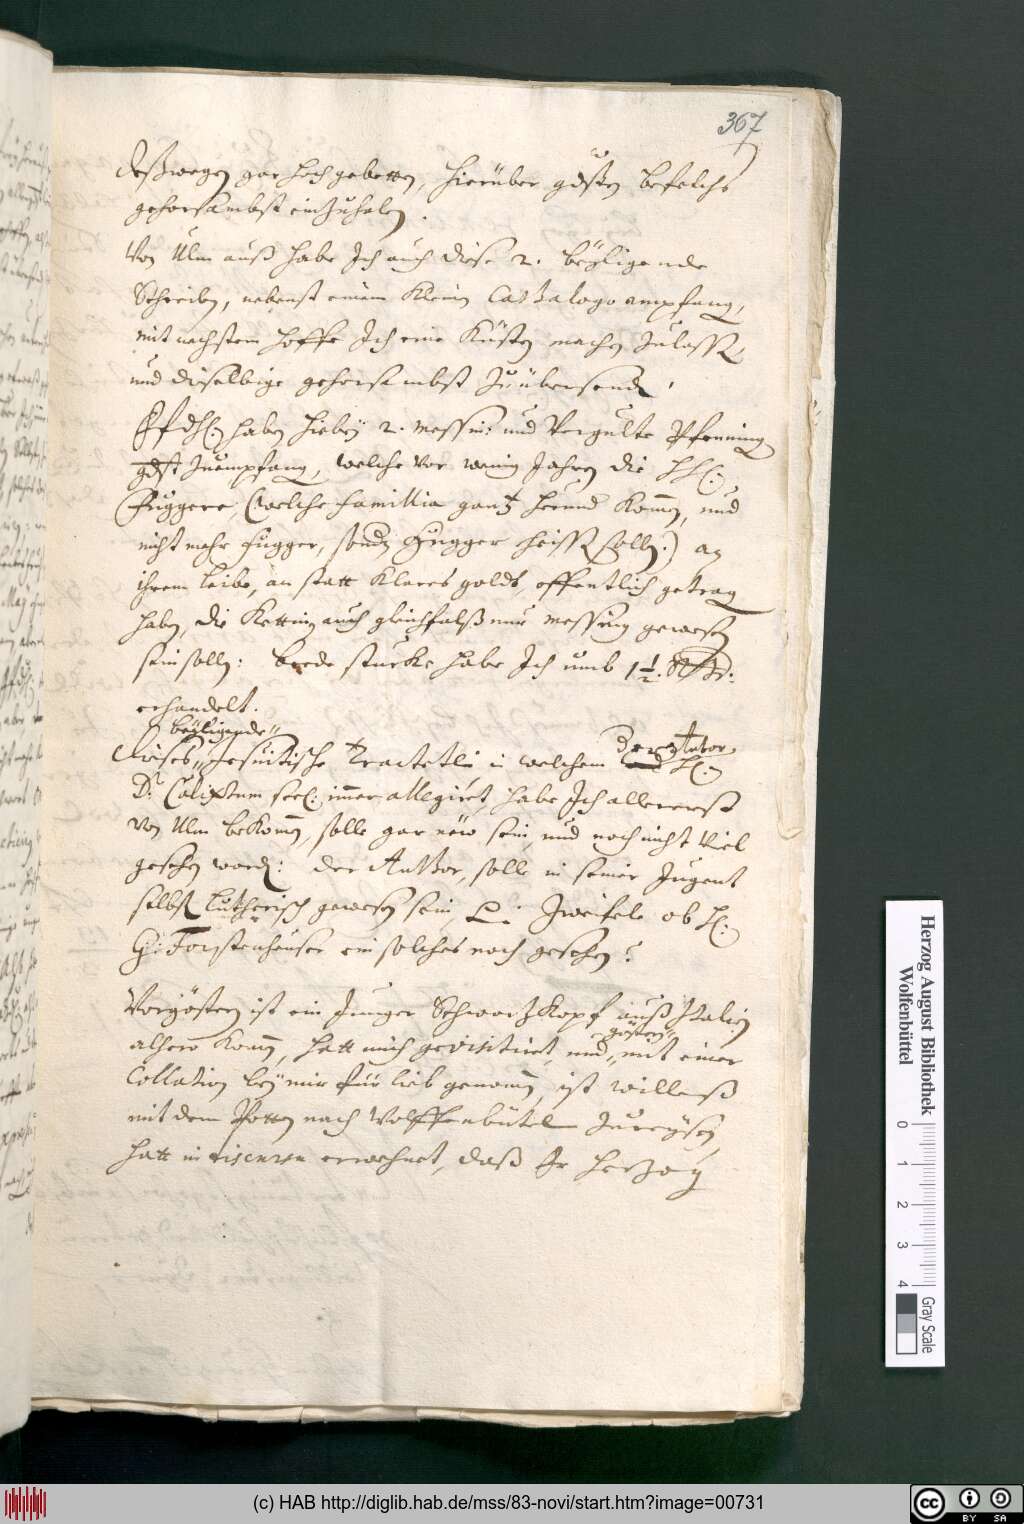 367
deßwegen gar hoch gebetten, hierüber gdsten befelchs
gehorsambst einzuholen.
Von Ulm auß habe Ich auch diese 2. beÿligende
Schreiben, nebenst einem kleinen Cathalogo empfang,
mit nachstem hoffe Ich eine Küsten machen zulassen
und dieselbige gehorsambst zuübersenden,
haben hiebeÿ 2. messin: und Vergulte Pfenning
gdst zuempfang, welche vor wenig Jahren die HH.
Fuggere, (welche familia gantz herund kommen, und
nicht mehr fugger, sondern heissen sollen) an
ihrem leibe, an statt klares golds, offentlich getrag
haben, die Kettin auch gleichfalß nur messing gewesen
sein sollen: beede stucke habe Ich umb 1½
erhandelt.
beÿligende
Dieses Jesuitische Tractetlin in welchem der Autor H.
Dr. Calixtum seel. immer allegiret, habe Ich allererst
von Ulm bekommen, solle gar new sein, und noch nicht viel
gesehen worden: der Author, solle in seiner Jugent
selbst lutherisch gewesen sein, zweifele ob H.
G: Forstenheuser ein solches noch gesehen?
Vorgöstern ist ein Junger Schwartzkopf auß Italien
göstern
alhero kommen, hatt mich gevisitiret, und mit einer
Collation beÿ mir für lieb genommen, ist willens
mit dem Potten nach Wolffenbütel zureÿsen,
hatt in discursn erwehnet, daß Ir Hertzog
Herzog August Bibliothek
Wolfenbüttel
0 1 2 3 4
Gray Scale
(c) HAB http://diglib.hab.de/mss/83-novi/start.htm?image=00731
cc BY SA